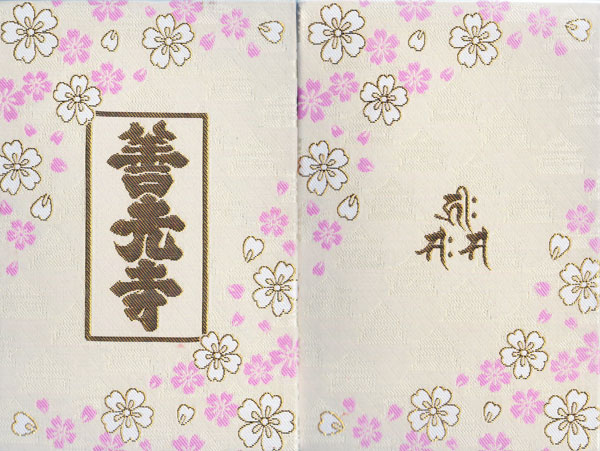 善光寺